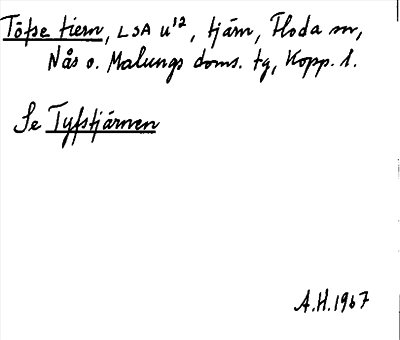 Töfse tiern, LSA u¹², tjärn, Floda sn,
Nås o. Malungs doms. tg, Kopp. l.
Se Tyfstjärnen
A.H.1967